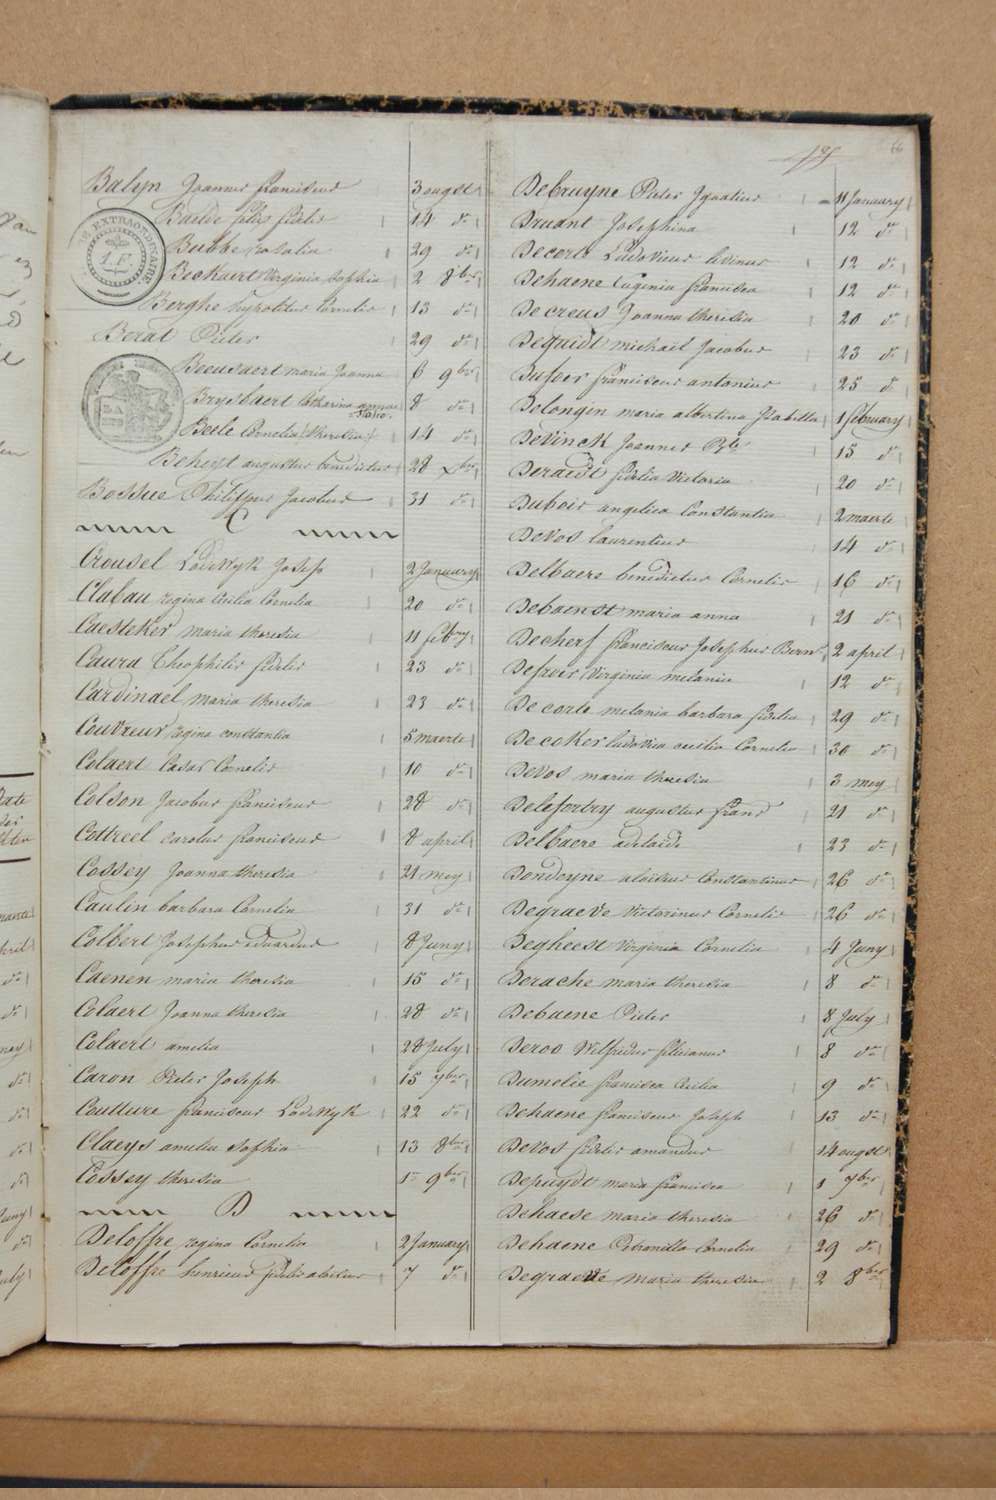 66
Balyn Joannes franciscus 3 augst
Baelde felix fidelis 14 do
Bubbe rosalia 29 do
Beckaert Virginia Sophia 2 8ber
Berghe hypolitus Cornelis 13 do
Berat Pieter 29 do
Beeusaert maria Joanna 6 9ber
Bryslaert Catharina 8 do
Beele Cornelia (theresia) 14 do
Beheyt augustus benedictus 28 xber
Bossue Philippus Jacobus 31 do
C
Crousel Lodewyk Joseph 2 January
Clabau regina Cecilia Cornelia 20 do
Caesteker maria theresia 11 febry
Caura Theophilis fidelis 23 do
Cardinael maria theresia 23 do
Couvreur regina constantia 5 maerte
Colaert Casar Cornelis 10 do
Colson Jacobus franciscus 28 do
Cottreel carolus franciscus 8 april
Cossey Joanna theresia 21 mey
Caulin barbara Cornelia 31 do
Colbert Josephus eduardus 8 Juny
Caenen maria theresia 15 do
Colaert Joanna theresia 28 do
Colaert amelia 28 July
Caron Pieter Joseph 15 7ber
Coutture franciscus Lodewyk 22 do
Claeys amelia Sophia 13 8ber
Cossey theresia 1 9ber
D
Deloffre regina Cornelia 2 January
Deloffre henricus fidelis 7 do
Debruyne Pieter Ignatius 11 January
Druant Josephina 12 do
Decorte Ludovicus livinus 12 do
Dehaene Eugenia francisca 12 do
Decreus Joanna theresia 20 do
Dequidt michael Jacobus 23 do
Dufoir franciscus antonius 25 do
Dolongin maria albertina Isabella 1 february
Devinck Joannes Bte 15 do
Deraedt fidelia Victoria 20 do
Dubois angelica Constantia 2 maerte
Devos laurentius 14 do
Delbaere benedictus Cornelis 16 do
Debainst maria anna 21 do
Decherf franciscus Josephus Bern. 2 april
Defroir Virginia melanie 12 do
Decorte melania barbara fidelia 29 do
Decoker ludovica cecilia Cornelia 30 do
Devos maria theresia 3 mey
Delefortry augustus 21 do
Delbaere adelaide 23 do
Dondeyne aloisius Constantinus 26 do
Degraeve Victorinus Cornelis 26 do
Degheest Virginia Cornelia 4 Juny
Derache maria theresia 8 do
Debaene Pieter 8 July
Deroo Wilfridus 8 do
Dumelie francisca Cecilia 9 do
Dehaene franciscus Joseph 13 do
Devos fidelis amandus 14 augst
Depuydt maria francisca 1 7ber
Dehaese maria theresia 26 do
Dehaene Petronilla Cornelia 29 do
Degraeve maria theresia 2 8ber
EXTRAORDINAIRE
1. F.